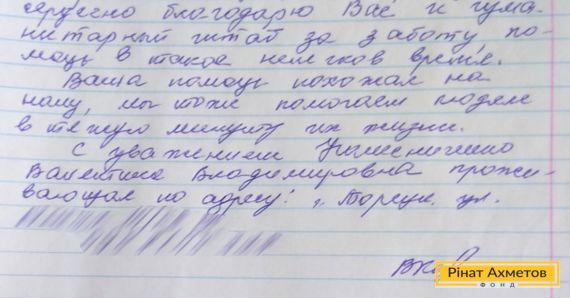 сердечно благодарю Вас и гума-
нитарный штаб за заботу, по-
мощь в такое нелегков время.
Ваша помощь похожая на
нашу, мы тоже помогаем людям
в тяжёлую минуту их жизни.
С уважением
Валентина Владимировна прожи-
вающая по адресу: г. Торецк ул.
Рінат Ахметов
ФОНД